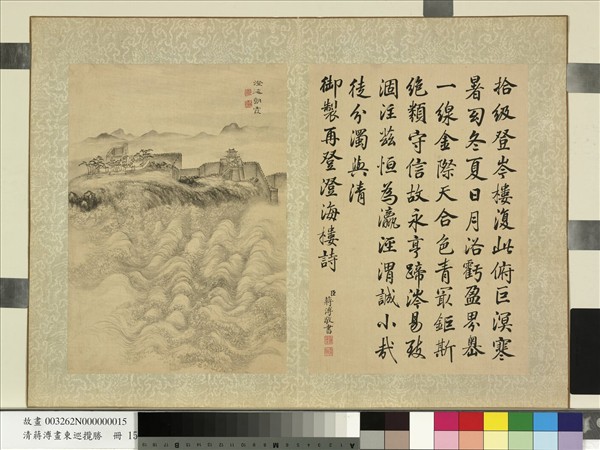 澄
拾級登岑樓復此俯巨溟寒
暑司冬夏日月浴虧盈界
一線金際天合色青最鉅斯
絕類守信故永亨蹄涔易致
涸注茲恒為瀛涇渭誠小哉
徒分濁與清
御製再登澄海樓詩
臣蔣溥敬書
故畫 003262N000000015
清蔣溥畫東巡攬勝 冊 15